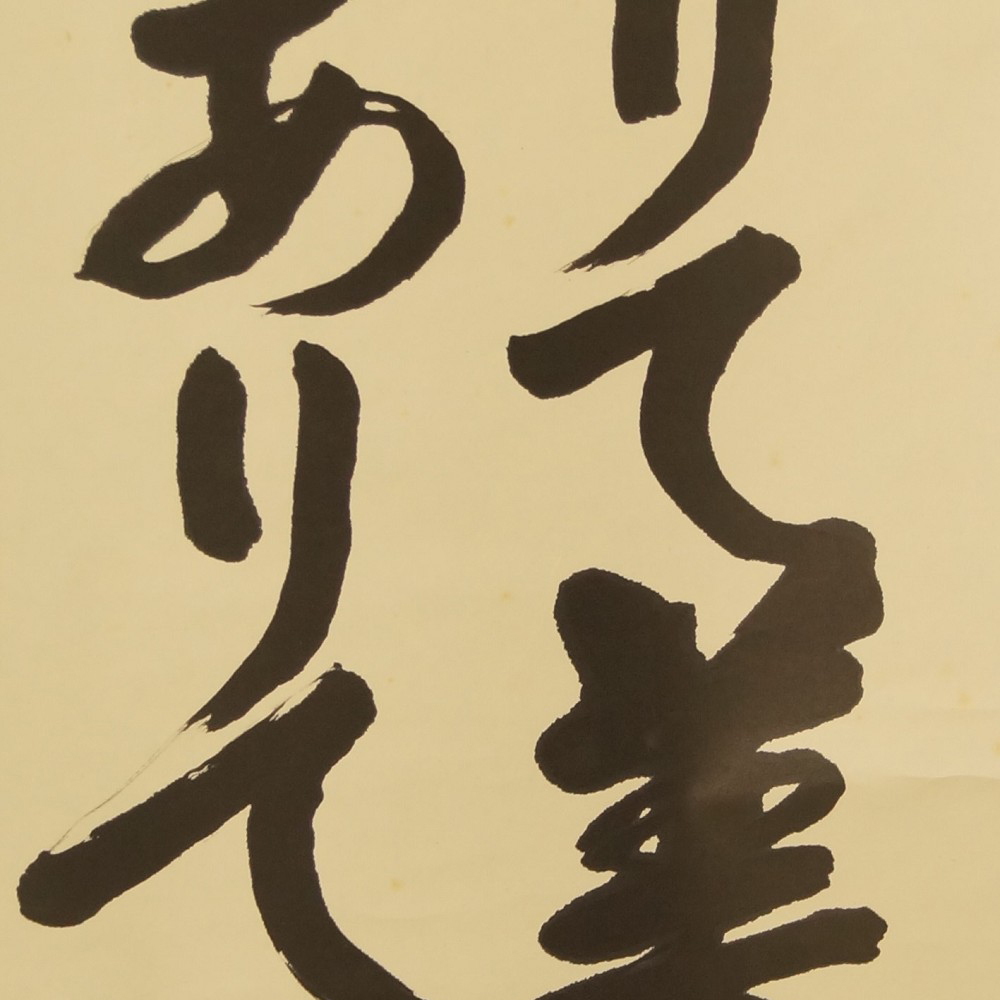 りて
ありて